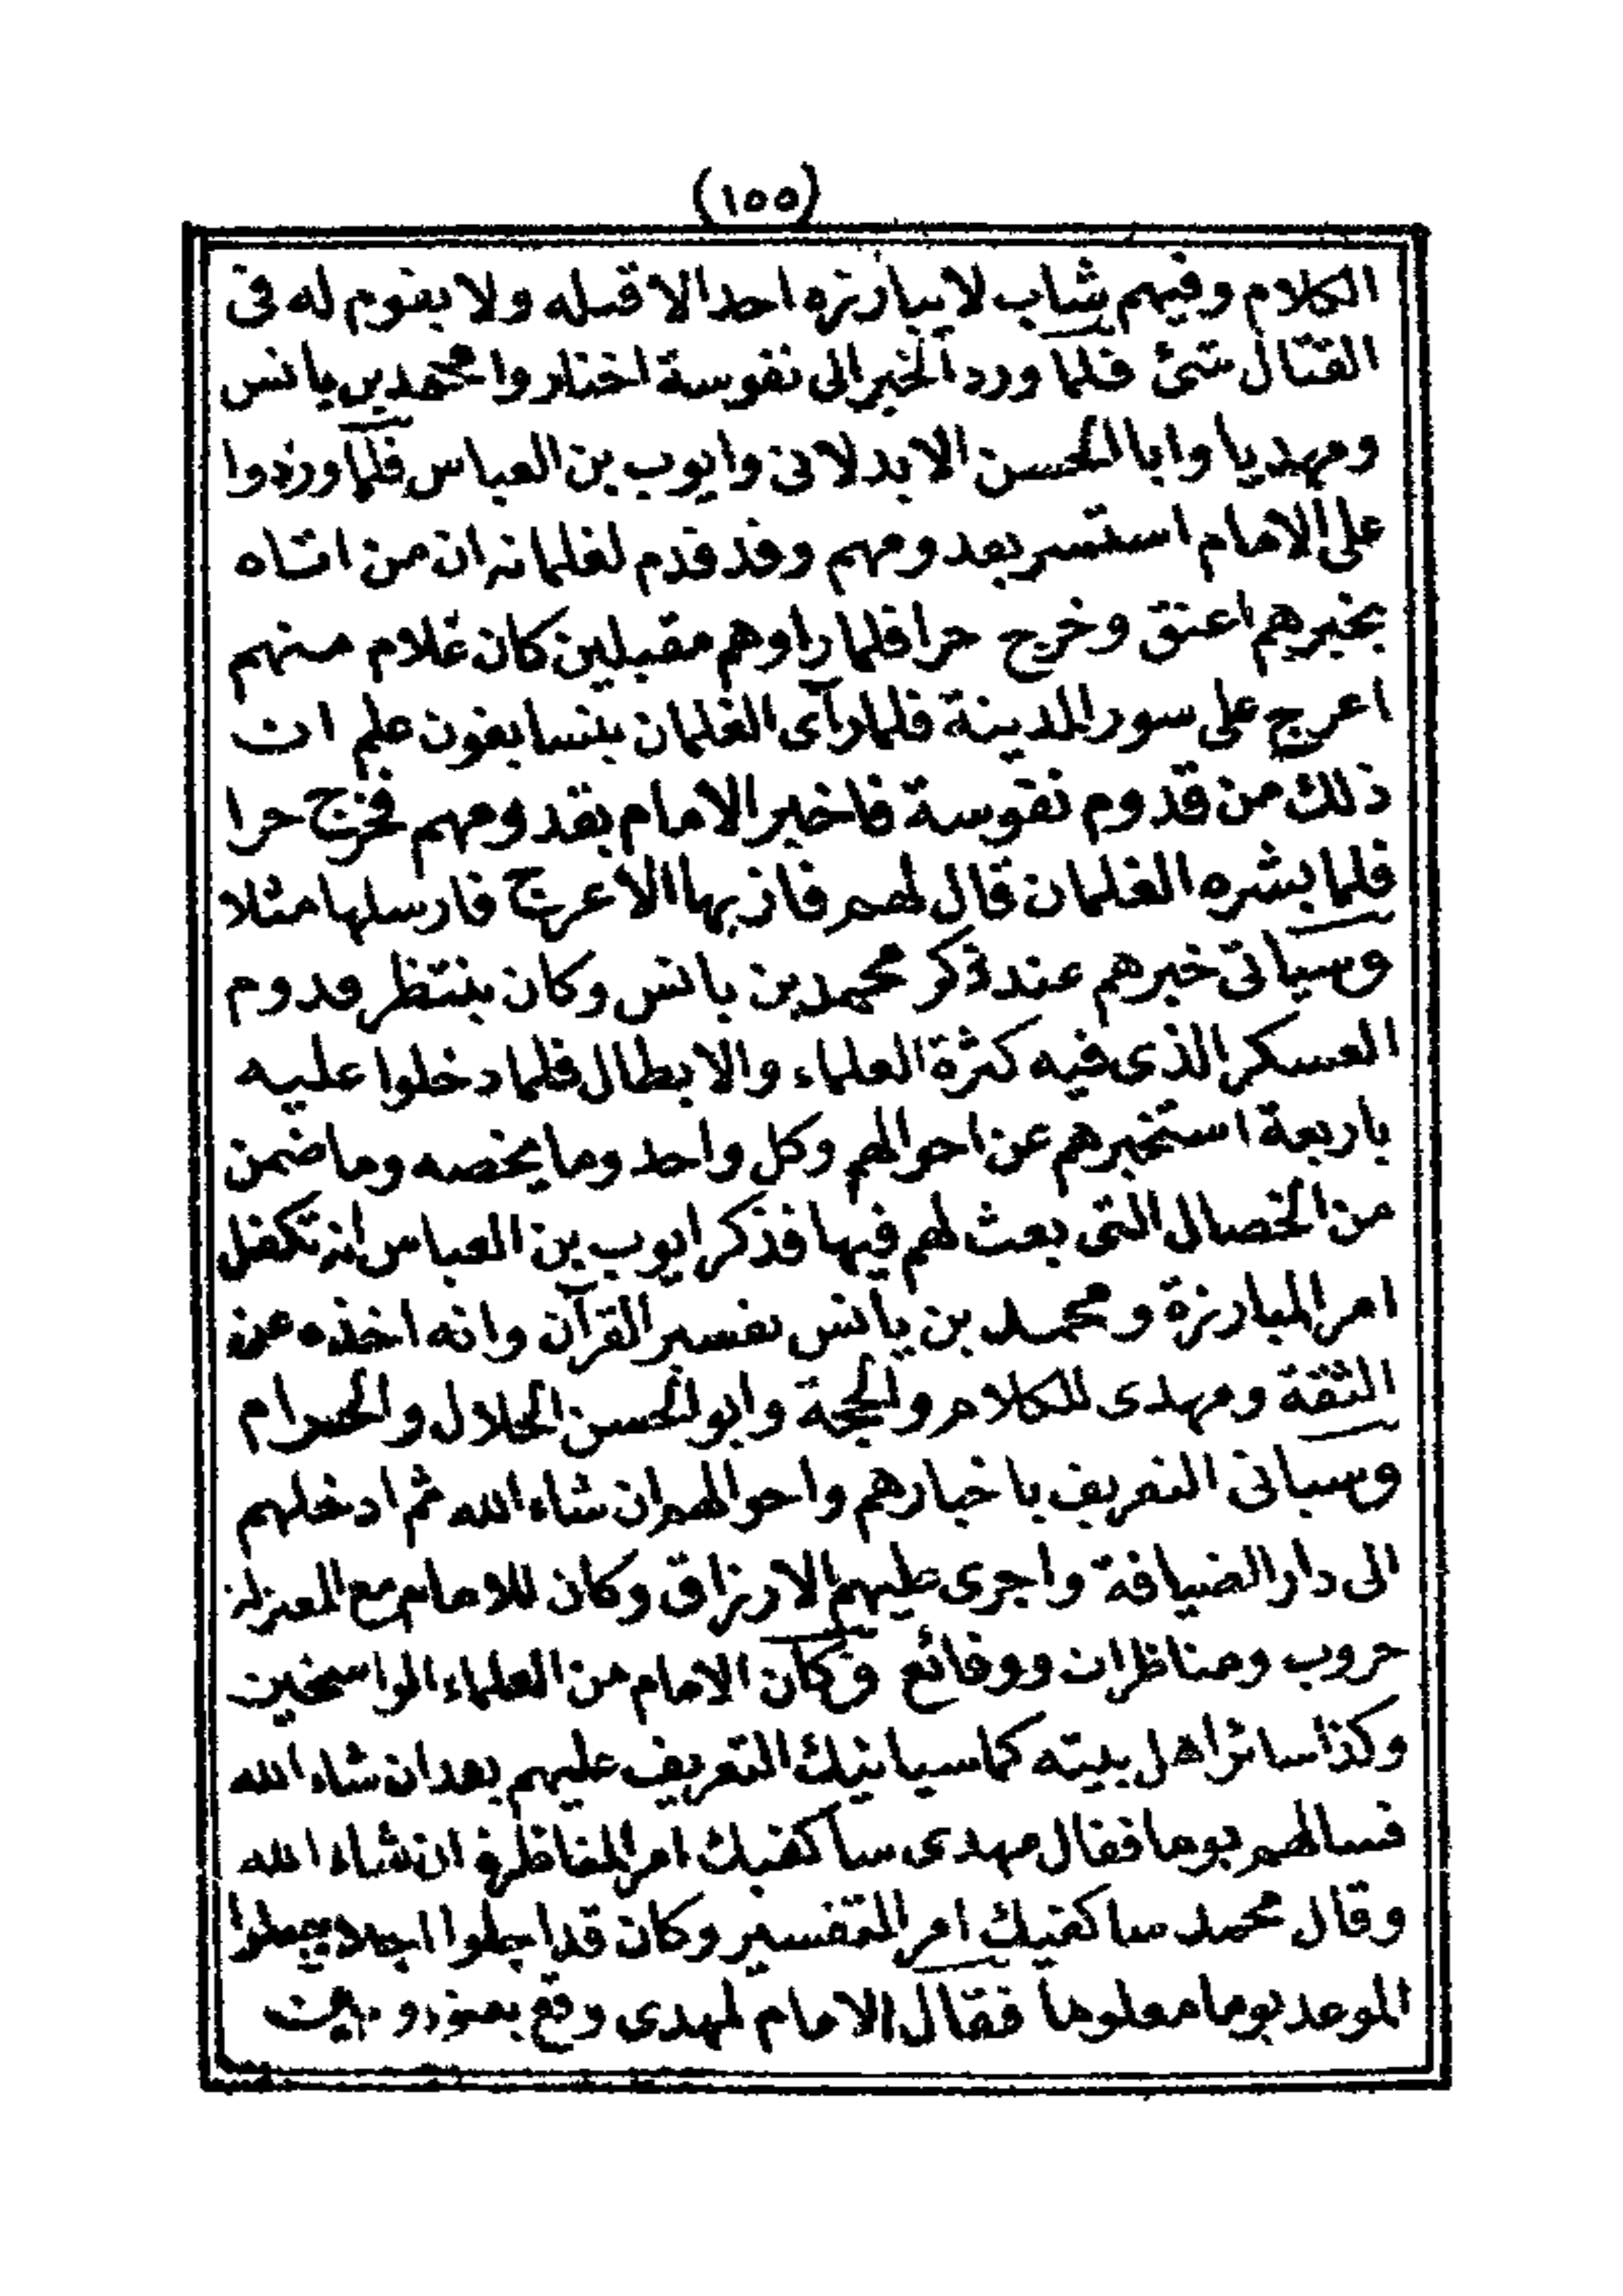 (١٥٥)
الكلام وفيهم شاب لا يبارزه احد الا قتله ولا يقوم له فى
القتال شئ فلما ورد الخبر الى نفوسة اختاروا محمد بن يانس
ومهديا وابا الحسن الابدلانى وايوب بن العباس فلما وردوا
على الامام استسر بقدومهم وقد قدم لغلمانه ان من اتاه
بخبرهم اعتق وخرج حرا فلما راوهم مقبلين كان غلام منهم
اعرج على سور المدينة فلما رآى الغلمان يتسابقون علم ان
ذلك من قدوم نفوسة فاخبر الامام بقدومهم فخرج حرا
فلما بشره الغلمان قال لهم فاز بها الاعرج فارسلها مثلا
وسياتى خبرهم عند ذكر محمد بن يانس وكان ينتظر قدوم
العسكر الذى فيه كثرة العلماء والابطال فلما دخلوا عليه
باربعة استخبرهم عن احوالهم وكل واحد وما يخصه وما ضمن
من الخصال التى بعث لهم فيها فذكر ايوب بن العباس انه تكفل
امر المبارزة ومحمد بن يانس تفسير القرآن وانه اخذه عن
الثقة ومهدى للكلام والحجة وابو الحسن الحلال والحرام
وسياتى التعريف باخبارهم واحوالهم ان شاء الله ثم ادخلهم
الى دار الضيافة واجرى عليهم الارزاق وكان للامام مع المعتزلة
حروب ومناظرات ووقائع وكان الامام من العلماء الراسخين
وكذا سائر اهل بيته كما سياتيك التعريف عليهم بعد ان شاء الله
فسالهم يوما فقال مهدى ساكفيك امر المناظرة ان شاء الله
وقال محمد ساكفيك امر التفسير وكان قد اجلوا اجلا يجعلوا
الموعد يوما معلوما فقال الامام لمهدى وقع بينى وبين